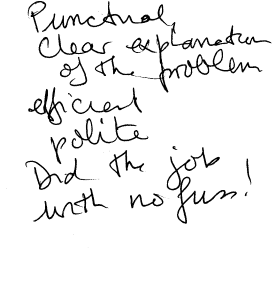 Punctual,
clear explanation
of the problem
efficient
polite
Did the job
with no fuss!